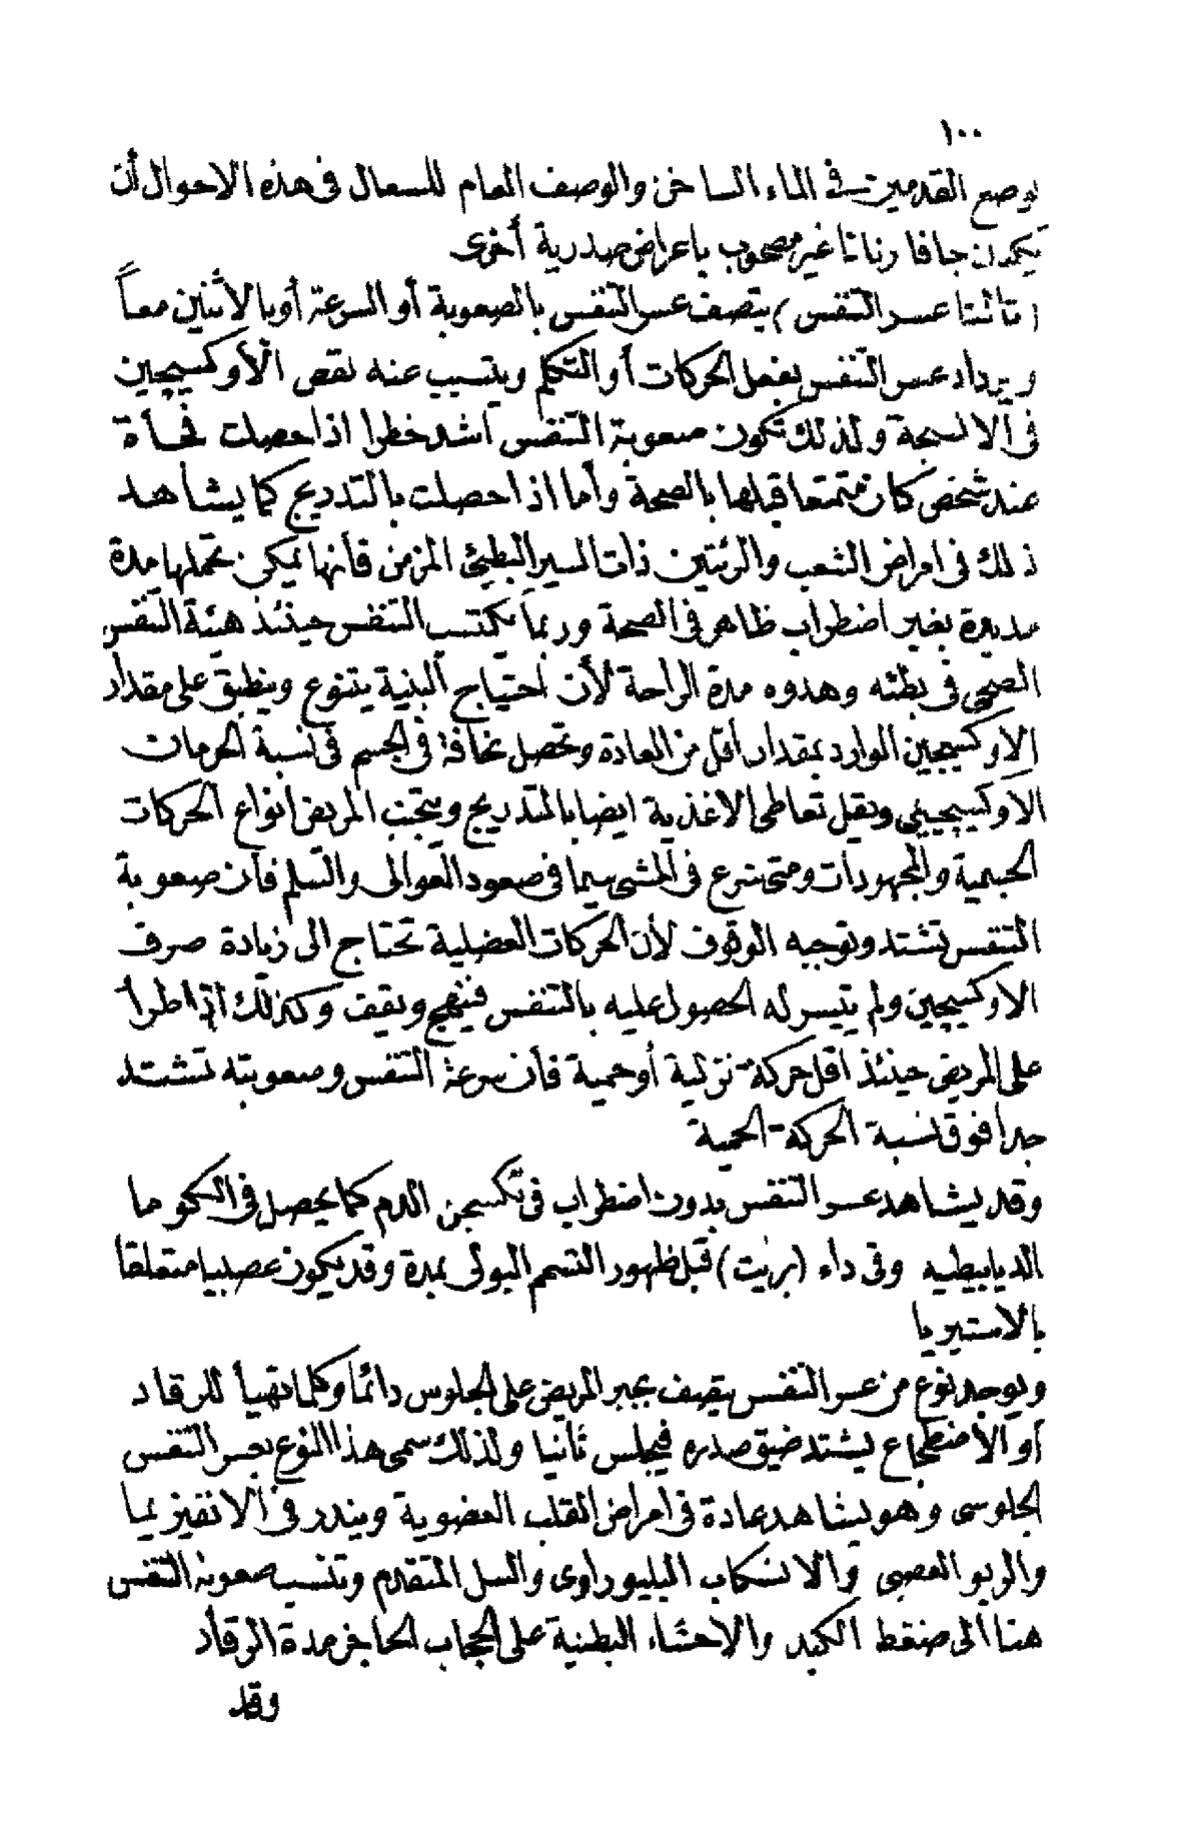 ١٠٠
بوضع القدمين في الماء الساخن والوصف العام للسعال في هذه الاحوال أن
يكون جافا رنانا غير مصحوب باعراض صدرية أخرى
(ثالثا عسر التنفس) يتصف عسر التنفس بالصعوبة أو السرعة أو بالأثنين معاً
ويزداد عسر التنفس بفعل الحركات أو التكلم ويتسبب عنه نقص الأوكسيجين
في الانسجة ولذلك تكون صعوبة التنفس أشد خطرا اذا حصلت فجأة
عند شخص كان متمتعا قبلها بالصحة وأما اذا حصلت بالتدريج كما يشاهد
ذلك في امراض الشعب والرئتين ذات السير البطيئ المزمن فأنها يمكن تحملها مدة
مديدة بغير اضطراب ظاهر في الصحة وربما يكتسب التنفس حينئذ هيئة التنفس
الصحى في بطئه وهدوه مدة الراحة لأن احتياج البنية يتنوع وينطبق على مقدار
الاوكسيجين الوارد بمقدار أقل من العادة وتحصل نحافة في الجسم في نسبة الحرمان
الأوكسيجينى ويقل تعاطى الاغذية ايضا بالتدريج ويتجنب المريض أنواع الحركات
الجسمية والمجهودات ومتى شرع في المشى سيما في صعود العوالى والسلم فأن صعوبة
التنفس تشتد وتوجبه الوقوف لأن الحركات العضلية تحتاج الى زيادة صرف
الاوكسيجين ولم يتيسر له الحصول عليه بالتنفس فينهج ويقف وكذلك اذا طرأ
على المريض حينئذ اقل حركة نزلية أو حمية فأن سرعة التنفس وصعوبته تشتد
جدا فوق نسبة الحركة الحمية
وقد يشاهد عسر التنفس بدون اضطراب في تكسجن الدم كما يحصل في الكوما
الديابيطيه وفى داء (بريت) قبل ظهور التسمم البولى بمدة وقد يكون عصبيا متعلقا
بالاستيريا
ويوجد نوع من عسر التنفس يتصف بجبر المريض على الجلوس دائما وكلما تهيأ للرقاد
أو الأضطجاع يشتد ضيق صدره فيجلس ثانيا ولذلك سمى هذا النوع بعسر التنفس
الجلوسى وهو يشاهد عادة في امراض القلب العضوية ويندر في الانفيزيما
والربو العصبى والانسكاب البليوراوى والسل المتقدم وتنسب صعوبة التنفس
هنا ألى ضغط الكبد والاحشاء البطنية على الحجاب الحاجز مدة الرقاد
وقد